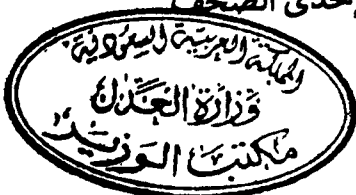 إحدى الصحف
المملكة العربية السعودية
وزارة العدل
مكتب الوزير